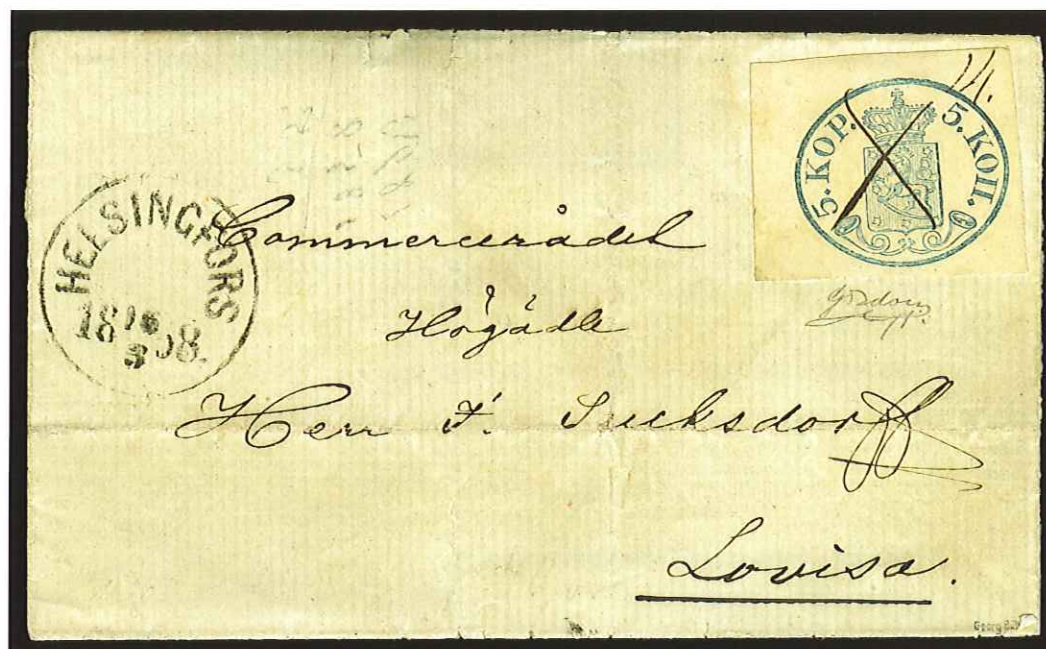 5. KOP. 5. КОП.
HELSINGFORS
Commercerådet
Högädle
Herr F. Sucksdorff
Lovisa.
Georg